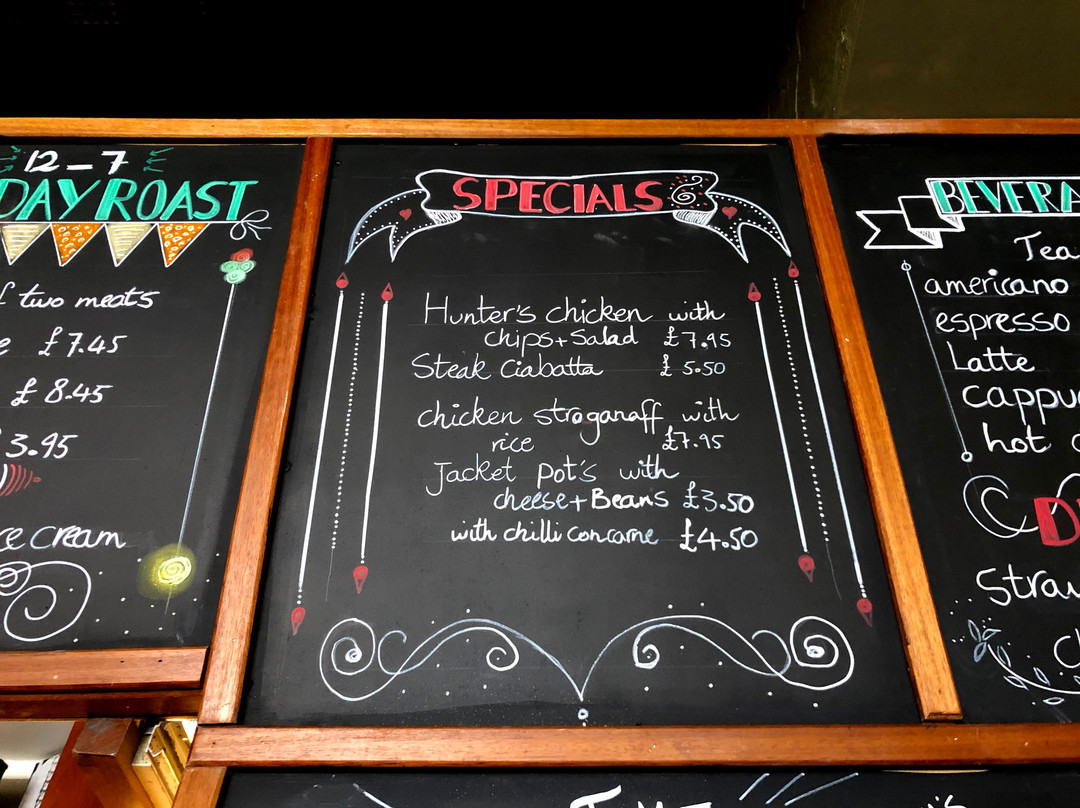 12-7
DAY ROAST
two meats
£7.45
£8.45
3.95
ice cream
SPECIALS
Hunter's chicken with
chips+Salad £7.95
Steak Ciabatta £5.50
chicken stroganaff with
rice £7.95
Jacket pot's with
cheese+Beans £3.50
with chilli concarne £4.50
BEVERA
Tea
americano
espresso
Latte
cappu
hot c
D
straw